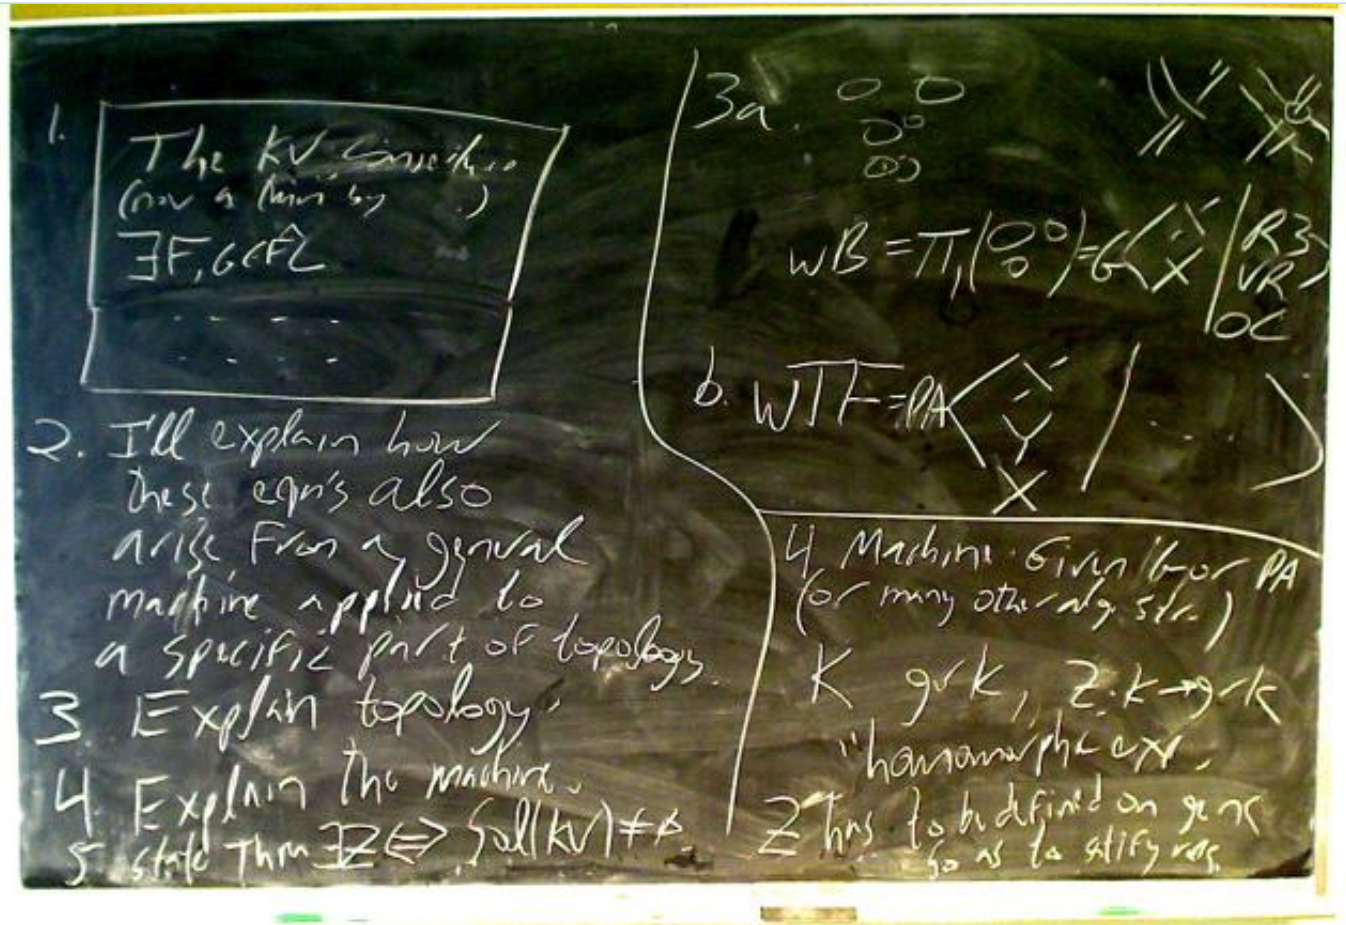 1.
The KV
(now a thm by ...)
∃F,G∈F̂L
- - - -
- - - -
2. I'll explain how
these eqn's also
arise from a general
machine applied to
a specific part of topology.
3 Explain topology.
4 Explain the machine.
5 state Thm ∃Z⇔Sol(KV)≠∅.
3a.
wB = π₁( ) = G< | R3
VR >
OC
b. wTF = PA< | - - - >
4 Machine. Given G or PA
(or many other alg. str.)
K grk, Z:k→grk
"homomorphic exp.
Z has to be defined on gens
so as to satisfy rels.